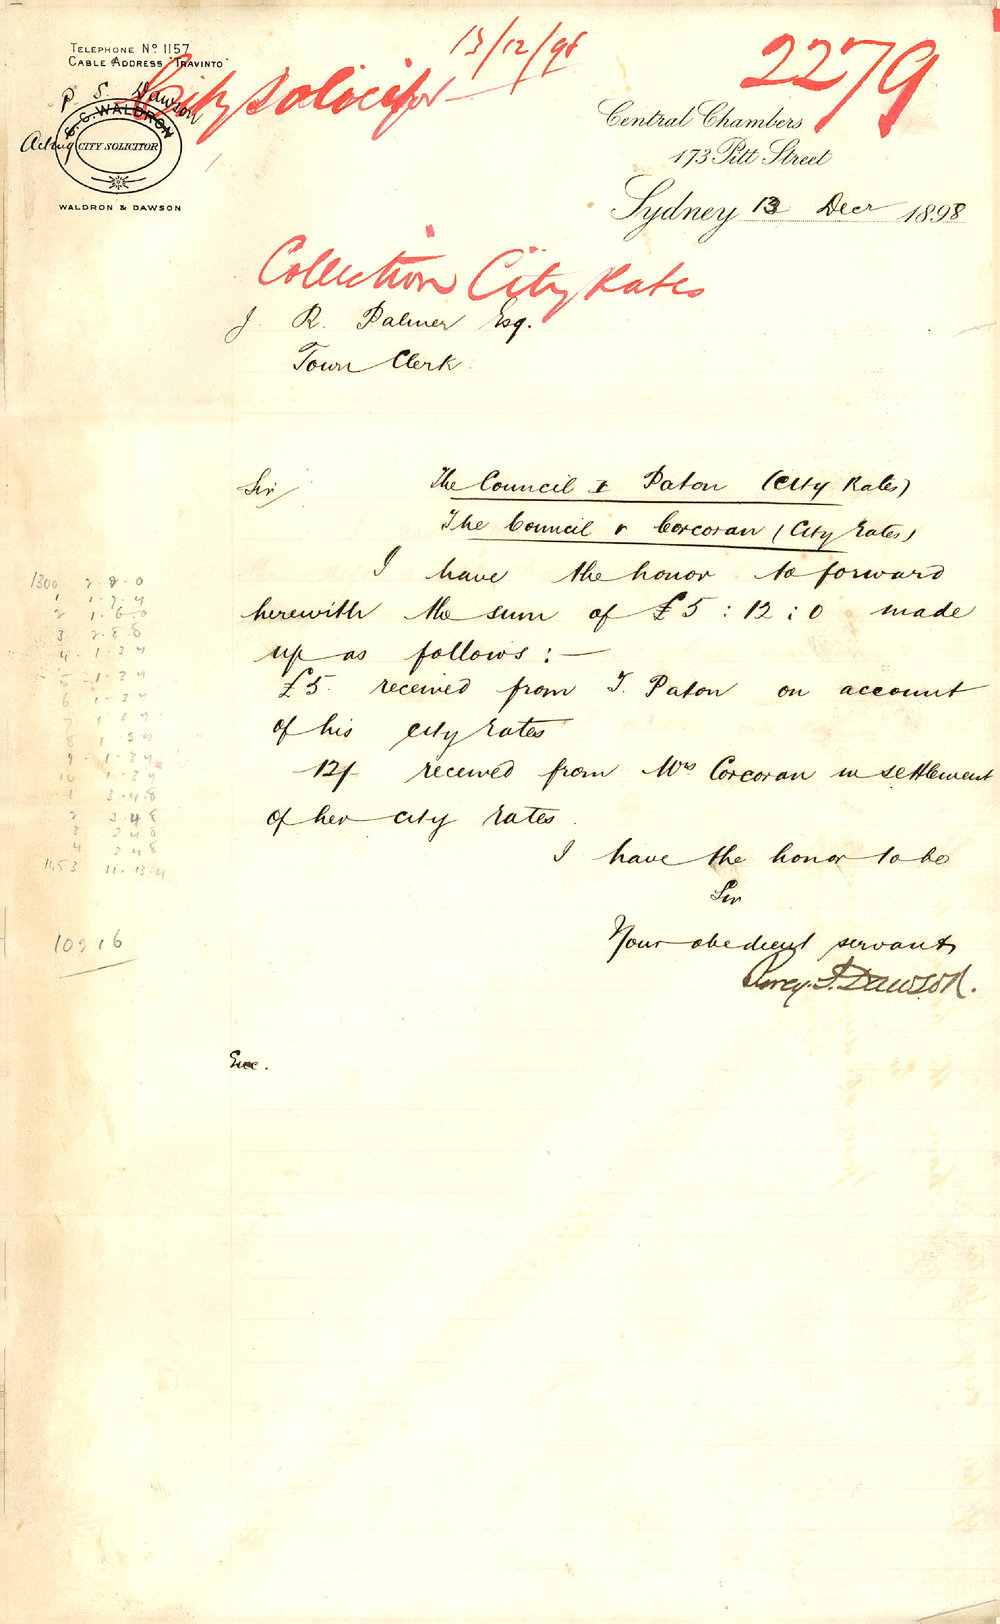 TELEPHONE Nº 1157
CABLE ADDRESS "TRAVINTO"
13/12/98
2279
City Solicitor
P. S. Dawson
G. C. WALDRON
Acting CITY SOLICITOR
WALDRON & DAWSON
Central Chambers
173 Pitt Street
Sydney 13 Decr 1898
Collection City Rates
J. R. Palmer Esq.
Town Clerk
Sir
The Council v Paton (City Rates)
The Council v Corcoran (City Rates)
I have the honor to forward
herewith the sum of £5 : 12 : 0 made
up as follows : —
£5. received from T. Paton on account
of his city rates
12/- received from Mrs Corcoran in settlement
of her city rates.
I have the honor to be
Sir
Your obedient servant
Percy. S. Dawson.
Enc.
1300 2.8.0
1 1.7.4
2 1.6.0
3 2.8.8
4 1.3.4
5 1.3.4
6 1.3.4